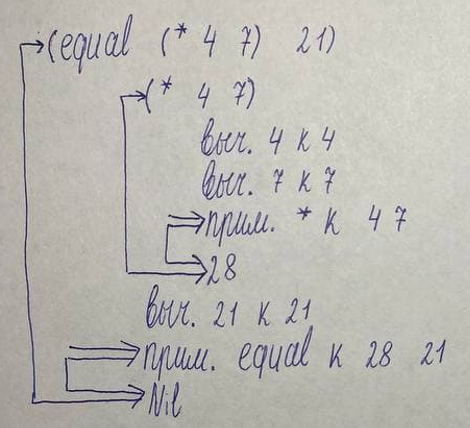 (equal (* 4 7) 21)
(* 4 7)
выч. 4 к 4
выч. 7 к 7
прим. * к 4 7
28
выч. 21 к 21
прим. equal к 28 21
Nil